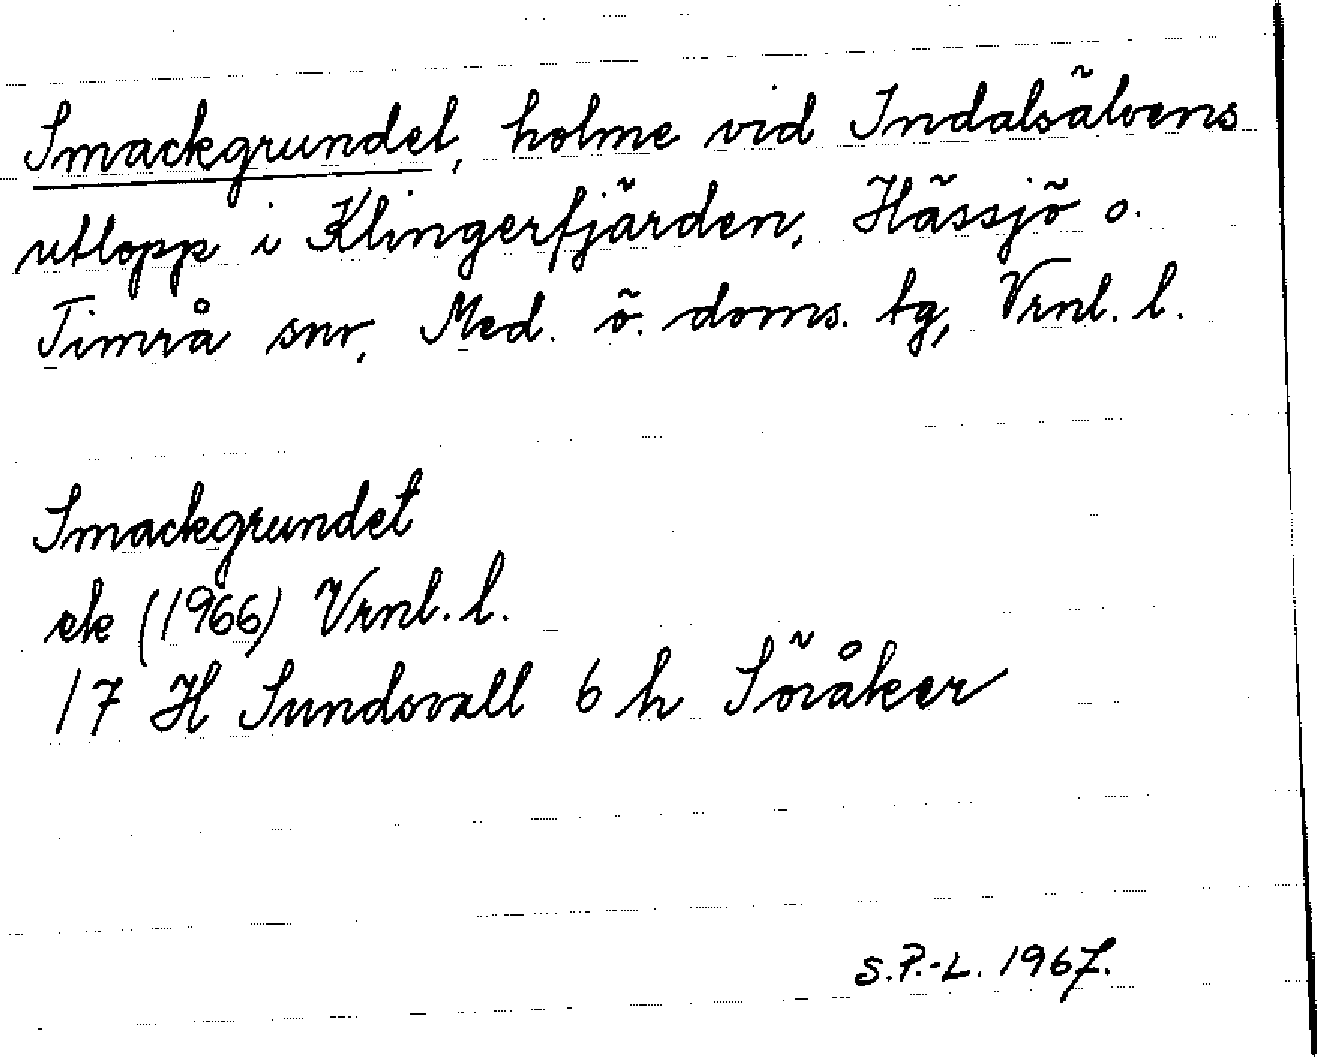 Smackgrundet, holme vid Indalsälvens
utlopp i Klingerfjärden, Hässjö o.
Timrå snr, Med. ö. doms. tg, Vrnl. l.
Smackgrundet
ek (1966) Vrnl. l.
17 H Sundsvall 6 h Söråker
S.P.-L. 1967.